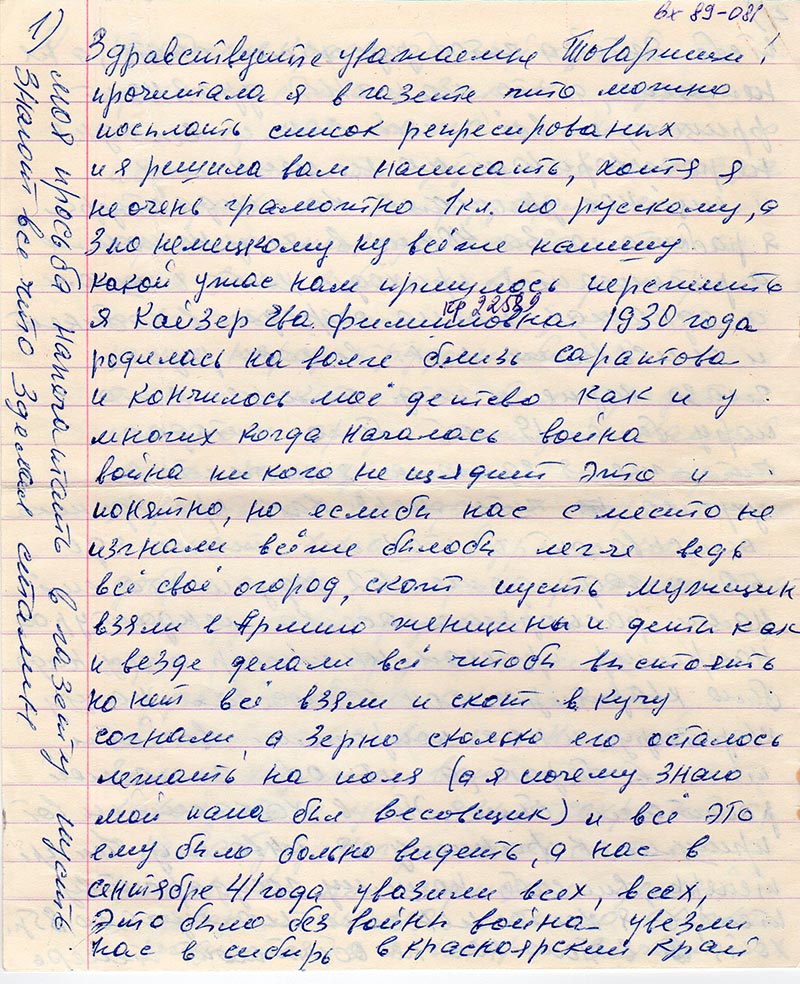 вх 89-081
1)
Здравствуйте уважаемые Товарищи!
прочитала я в газете что можно
посылать список репресированых
и я решила вам написать, хотя я
не очень грамотно 1 кл. по русскому, а
3 по немецкому ну всё же напишу.
какой ужас нам пришлось пережить
кр 22589
я Кайзер Ева Филиповна 1930 года
родилась на волге близь сарактова
и кончилось моё детсво как и у
многих когда началась война
война ни кого не щядит это и
понятно, но еслиби нас с место не
изгнали всёже былоби легче ведь
всё своё огород, скот пусть мужчин
взяли в Армию женщины и дети как
и везде делали всё чтоби выстоять
но нет всё взяли и скот в кучу
согнали, а зерно сколько его осталось
лежать на поля (а я почему знаю
мой папа был весовщик) и всё это
ему было больно видеть, а нас в
сентябре 41 года увазили всех, всех,
Это было без войны война увезли
нас в сибирь в красноярский край
моя просьба напечатать в газету пусть
знают все что зделал сталин